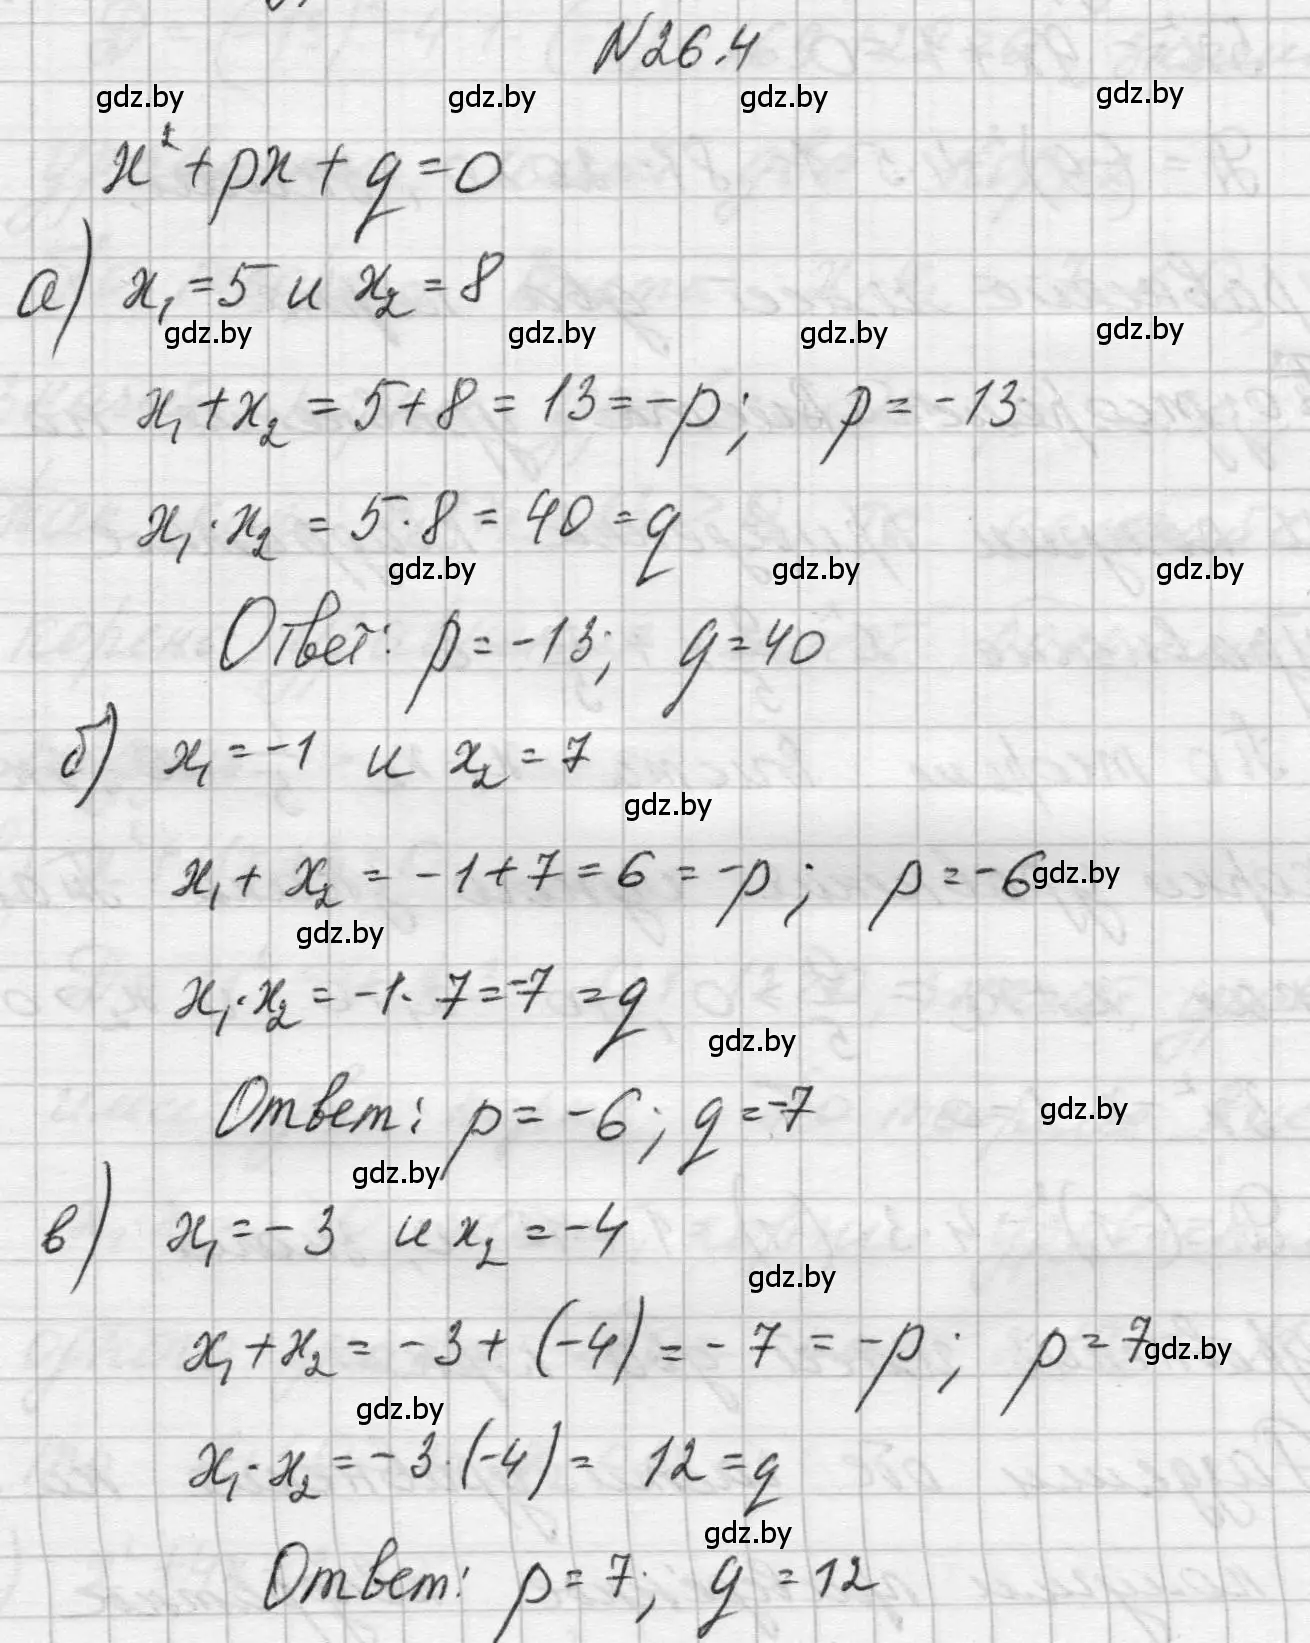 N 26.4
gdz.by gdz.by gdz.by gdz.by
x² + px + q = 0
а) x₁ = 5 и x₂ = 8
gdz.by gdz.by gdz.by gdz.by
x₁ + x₂ = 5 + 8 = 13 = -p; p = -13
x₁ · x₂ = 5 · 8 = 40 = q
gdz.by gdz.by gdz.by
Ответ: p = -13; q = 40
б) x₁ = -1 и x₂ = 7
gdz.by
x₁ + x₂ = -1 + 7 = 6 = -p; p = -6 gdz.by
gdz.by
x₁ · x₂ = -1 · 7 = -7 = q
gdz.by
Ответ: p = -6; q = -7 gdz.by
gdz.by
в) x₁ = -3 и x₂ = -4
gdz.by
x₁ + x₂ = -3 + (-4) = -7 = -p; p = 7 gdz.by
gdz.by
x₁ · x₂ = -3 · (-4) = 12 = q
gdz.by
Ответ: p = 7; q = 12